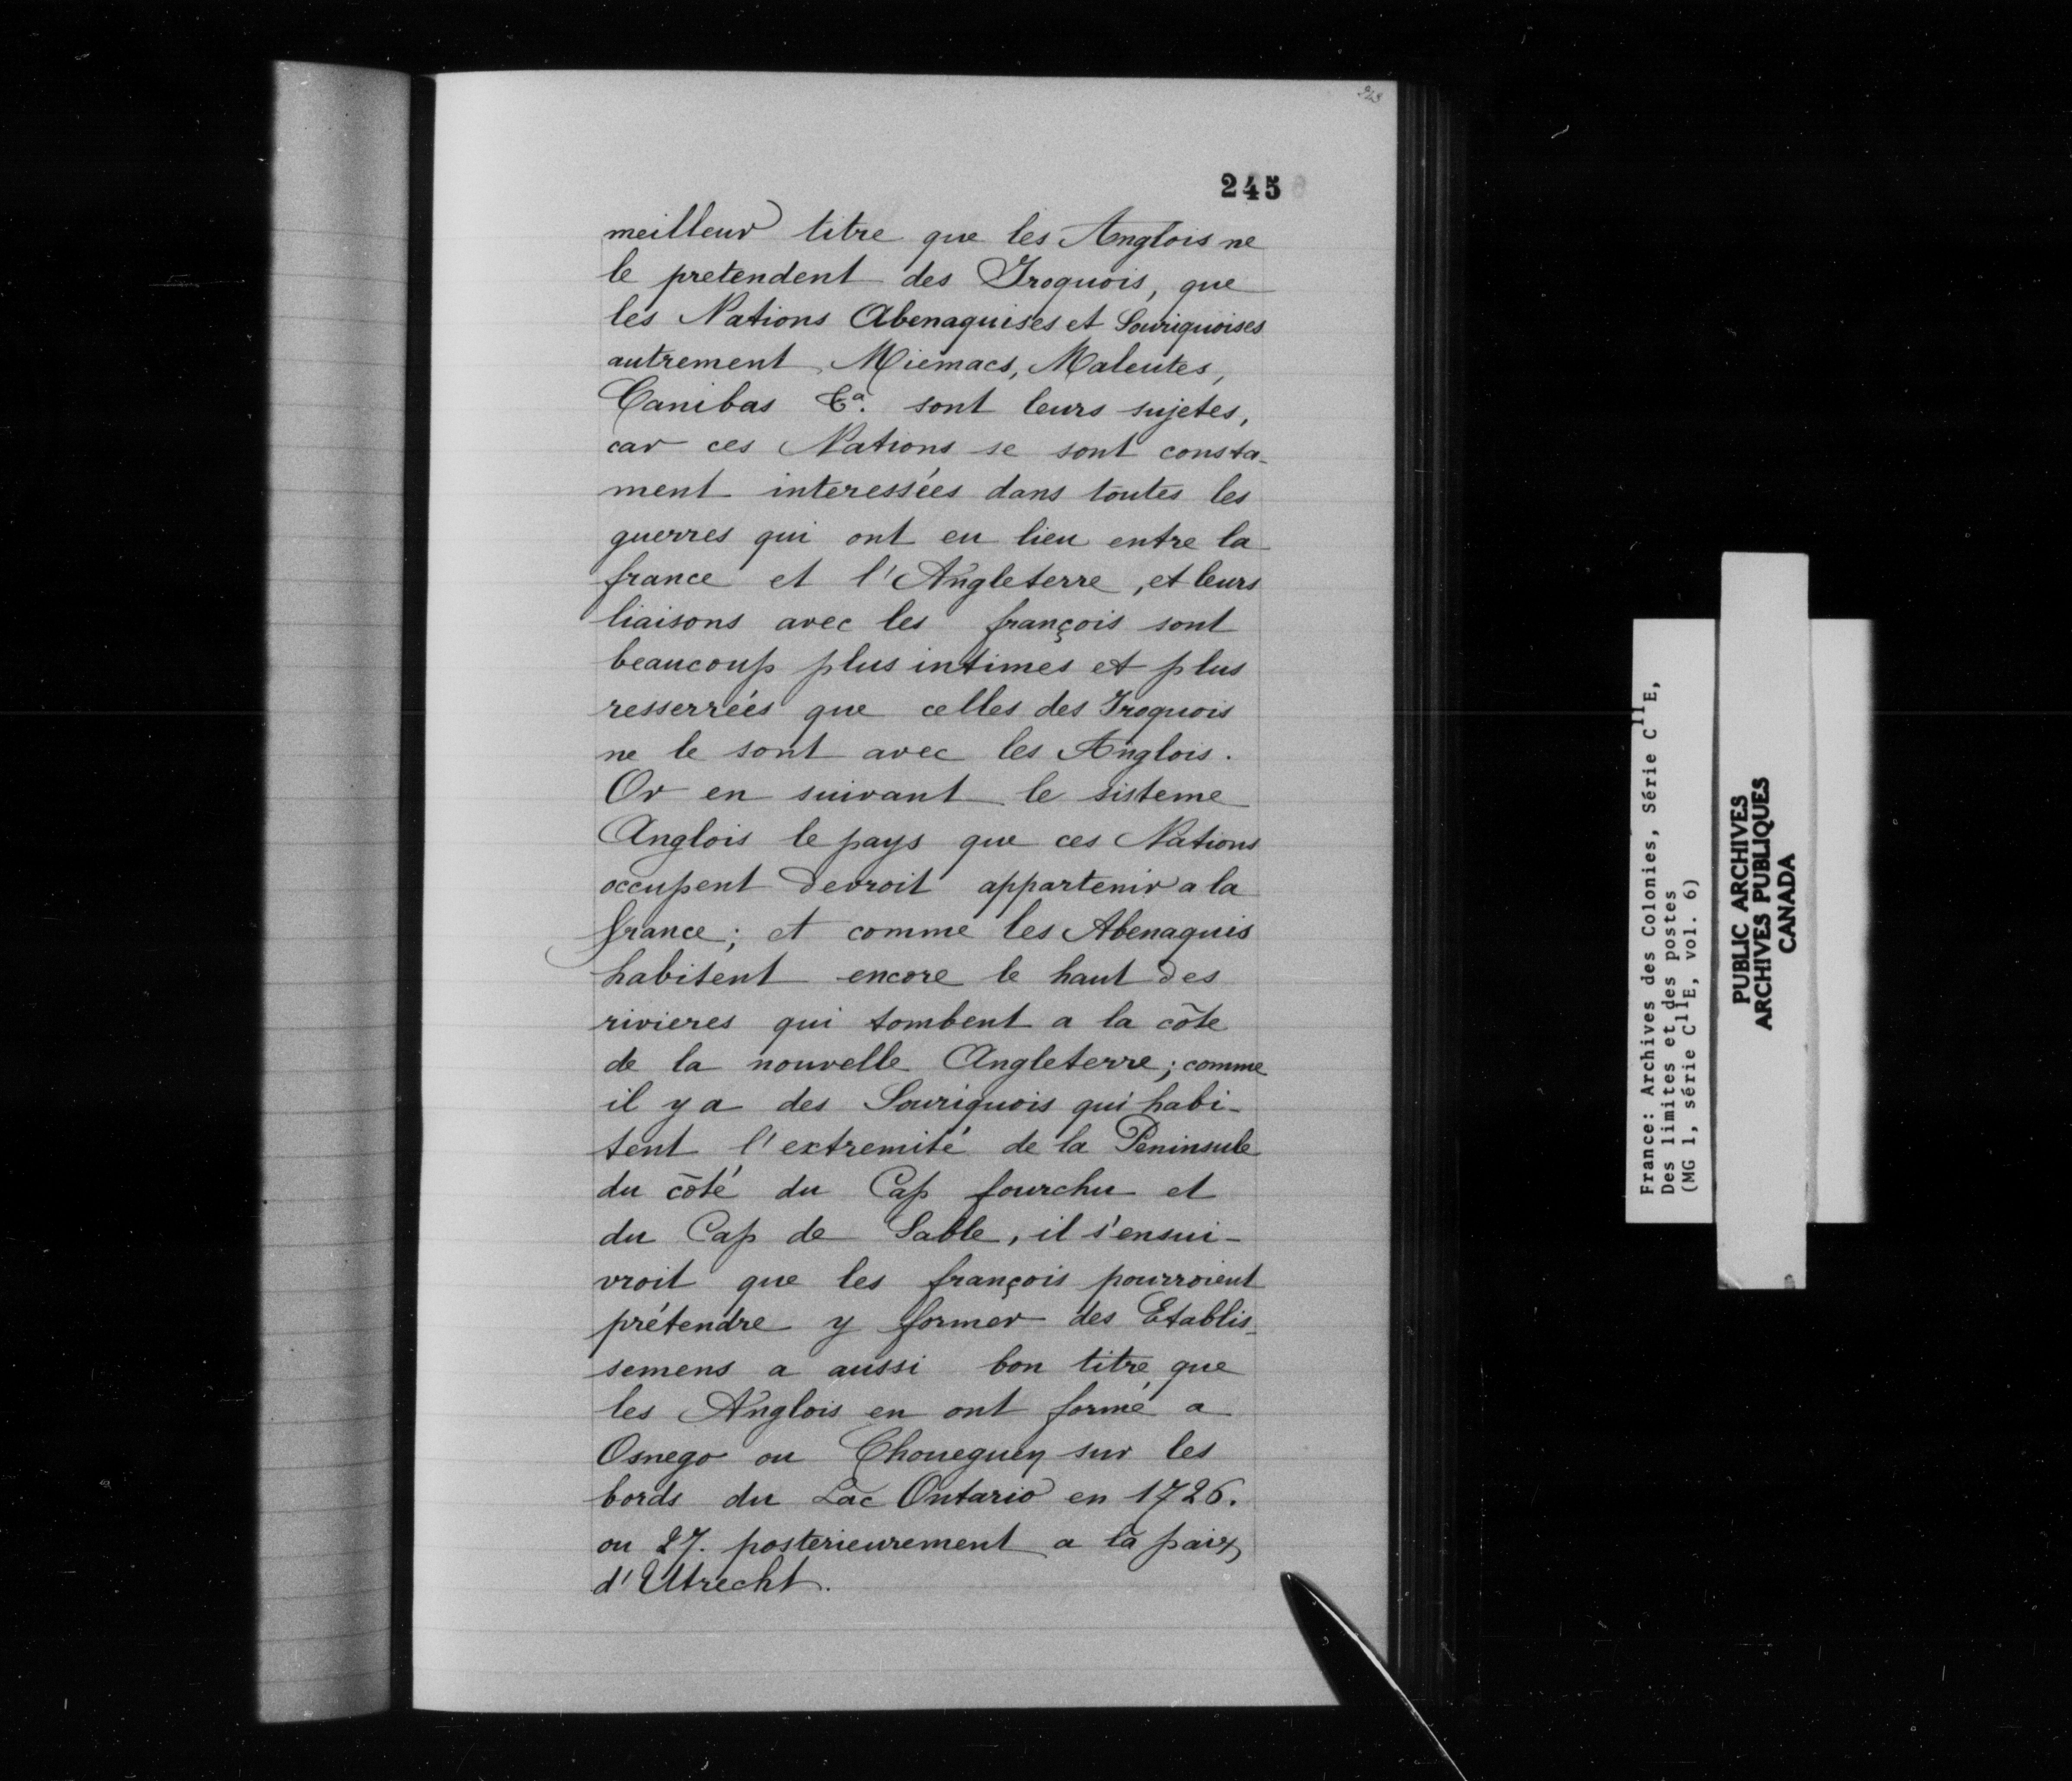 245
meilleur titre que les Anglois ne
le pretendent des Iroquois, que
les Nations Abenaquises et Souriquoises
autrement Miemacs, Maleutes,
Canibas &a. sont leurs sujetes,
car ces Nations se sont consta-
ment interessées dans toutes les
guerres qui ont eu lieu entre la
france et l'Angleterre, et leurs
liaisons avec les françois sont
beaucoup plus intimes et plus
resserrées que celles des Iroquois
ne le sont avec les Anglois.
Or en suivant le sisteme
Anglois le pays que ces Nations
occupent devroit appartenir a la
france; et comme les Abenaquis
habitent encore le haut des
rivieres qui tombent a la côte
de la nouvelle Angleterre; comme
il y a des Souriquois qui habi-
tent l'extremité de la Peninsule
du côté du Cap fourchu et
du Cap de Sable, il s'ensui-
vroit que les françois pourroient
prétendre y former des Etablis-
semens a aussi bon titre que
les Anglois en ont formé a
Osnego ou Choueguen sur les
bords du Lac Ontario en 1726.
ou 27. posterieurement a la paix
d'Utrecht.
France: Archives des Colonies, Série C11E,
Des limites et des postes
(MG 1, série C11E, vol. 6)
PUBLIC ARCHIVES
ARCHIVES PUBLIQUES
CANADA